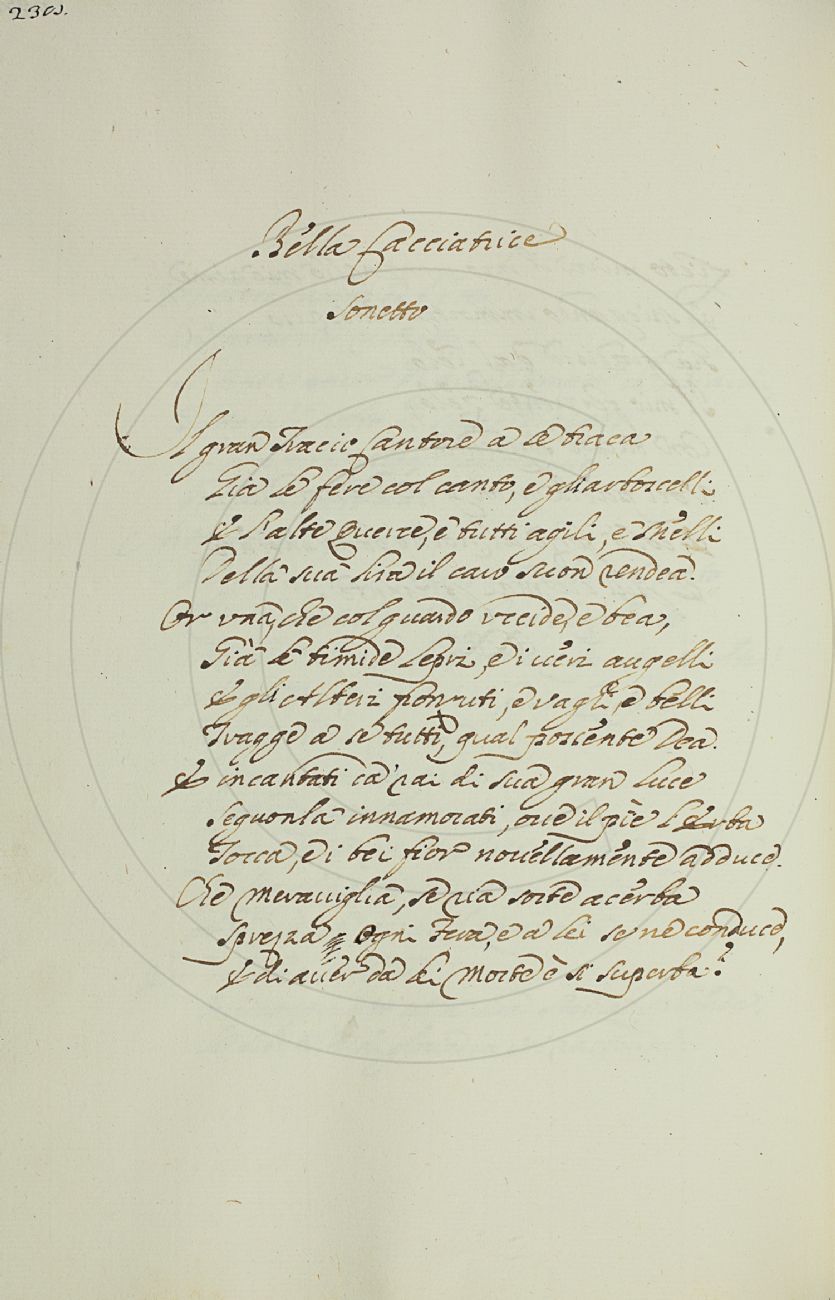 230.
Bella Cacciatrice
Sonetto
Il gran Tracio Cantore a se traea
Già le fere col canto, e gli arboscelli
E l'alte Querce, e tutti agili, e snelli
Della sua lira il caro suon rendea.
Or una, che col guardo uccide, e bea,
Già le timide Lepri, e i veri augelli
E gli Alteri fronzuti, e vaghi, e belli
Tragge a se tutti, qual possente Dea.
E incantati da' rai di sua gran luce
Seguonla innamorati, ove il piè l'Erba
Tocca, e i bei fior novellamente adduce.
Che meraviglia, se ria sorte acerba
Sprezza ogni Fera, e a lei se ne conduce,
E di aver da lei Morte è sì superba?